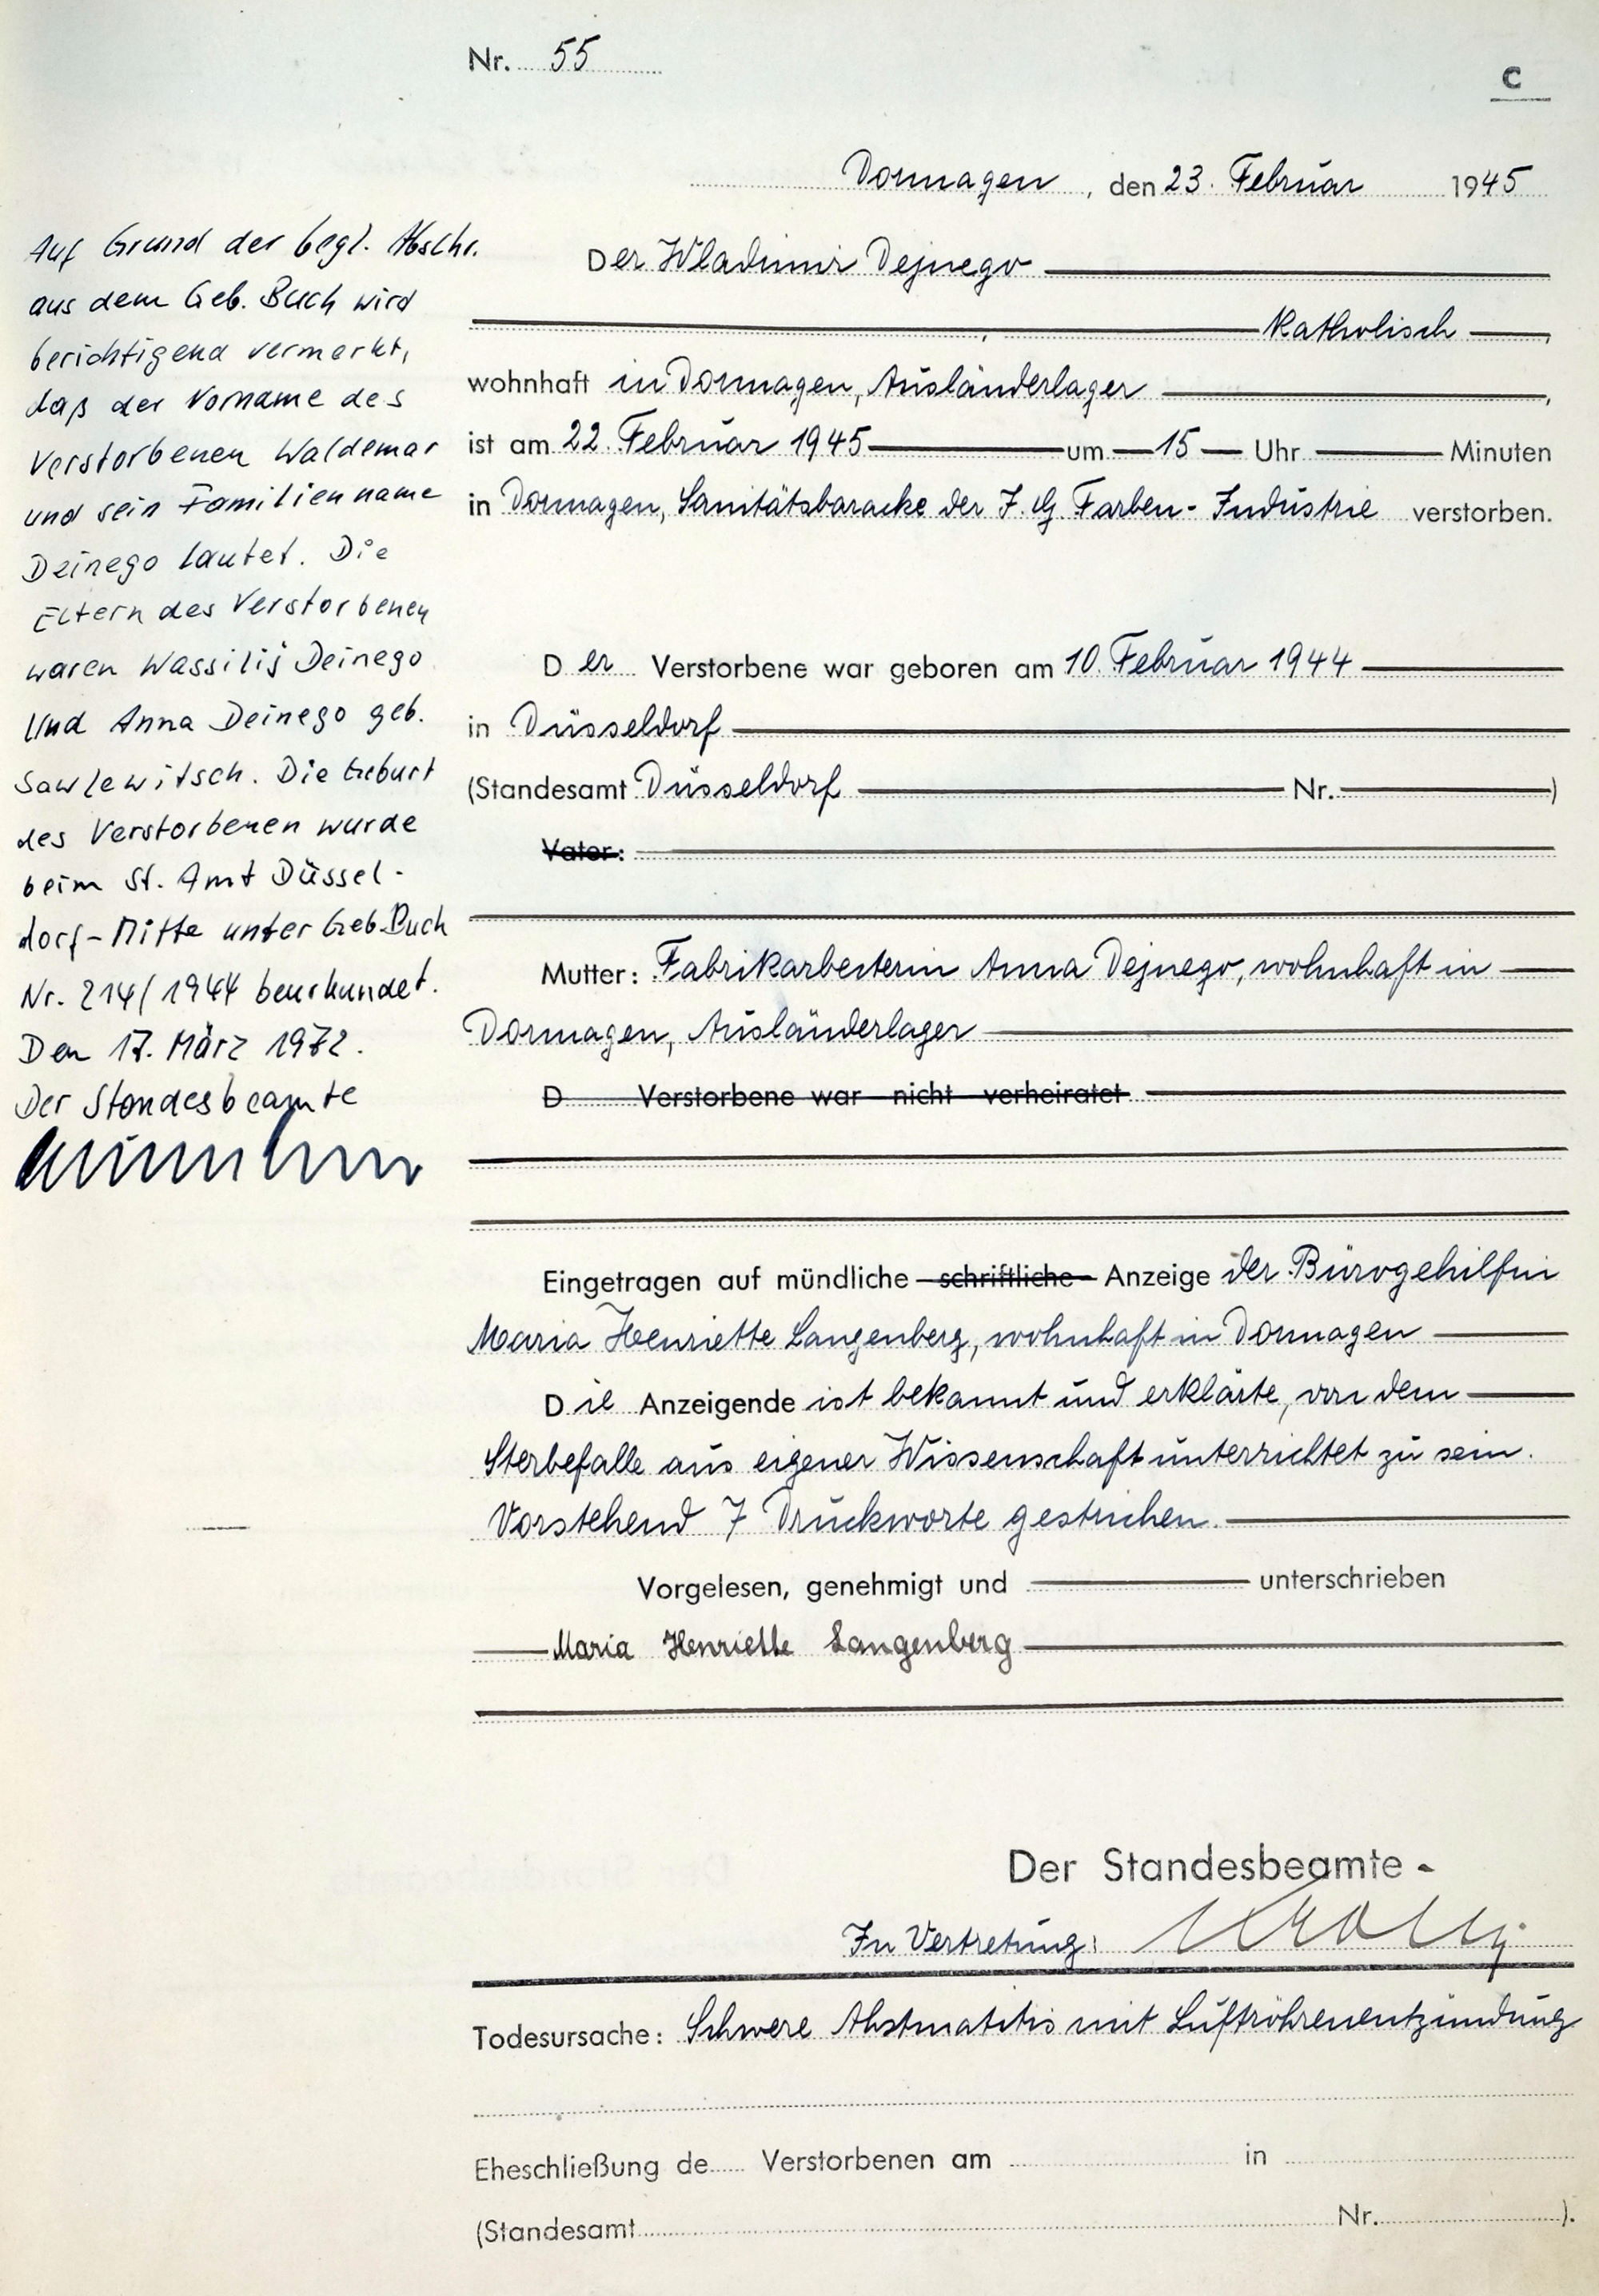 Nr. 55
C
Dormagen, den 23. Februar 1945
Der Wladimir Dejnego
katholisch,
wohnhaft in Dormagen, Ausländerlager,
ist am 22. Februar 1945 um 15 Uhr Minuten
in Dormagen, Sanitätsbaracke der I. G. Farben-Industrie verstorben.
Der Verstorbene war geboren am 10. Februar 1944
in Düsseldorf
(Standesamt Düsseldorf Nr. )
Vater:
Mutter: Fabrikarbeiterin Anna Dejnego, wohnhaft in
Dormagen, Ausländerlager
D Verstorbene war nicht verheiratet
Eingetragen auf mündliche schriftliche Anzeige der Bürogehilfin
Maria Henriette Langenberg, wohnhaft in Dormagen
Die Anzeigende ist bekannt und erklärte, von dem
Sterbefalle aus eigener Wissenschaft unterrichtet zu sein.
Vorstehend 7 Druckworte gestrichen.
Vorgelesen, genehmigt und unterschrieben
Maria Henriette Langenberg
Der Standesbeamte
In Vertretung:
Todesursache: Schwere mit Luftröhrenentzündung
Eheschließung de Verstorbenen am in
(Standesamt Nr. ).
Auf Grund der begl. Abschr.
aus dem Geb. Buch wird
berichtigend vermerkt,
daß der Vorname des
Verstorbenen Waldemar
und sein Familienname
Deinego lautet. Die
Eltern des Verstorbenen
waren Wassilij Deinego
und Anna Deinego geb.
Sawlewitsch. Die Geburt
des Verstorbenen wurde
beim St. Amt Düssel-
dorf-Mitte unter Geb. Buch
Nr. 214/1944 beurkundet.
Den 17. März 1972.
Der Standesbeamte